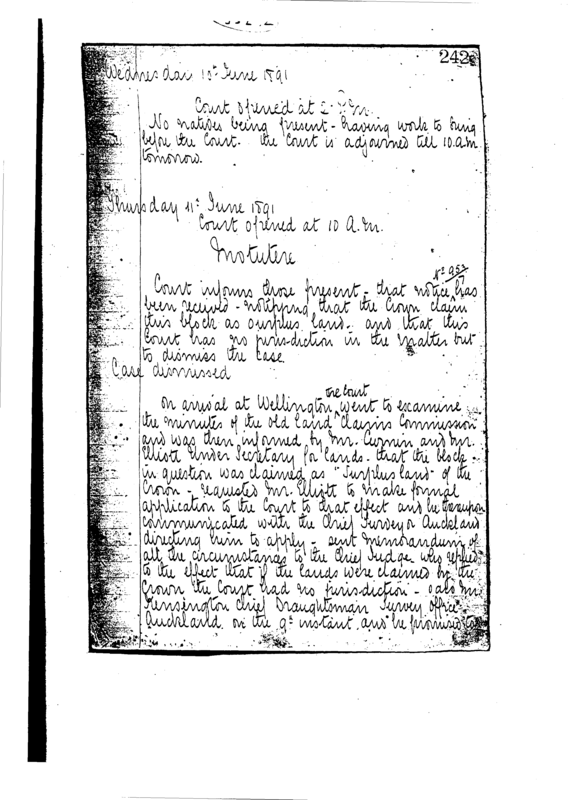 242
Wednesday 10th June 1891
Court opened at 2. P.m.
No natives being present - having work to bring
before the Court. The Court is adjourned till 10. a.m
tomorrow.
Thursday 11th June 1891
Court opened at 10 A.M.
Motutere
No 953
Court informs those present - that notice has
been received - notifying that the Crown claim
this block as surplus land - and that this
Court has no jurisdiction in the matter but
to dismiss the case
Case dismissed
the Court
On arrival at Wellington went to examine
the minutes of the old Land Claims Commission
and was then informed by Mr. and Mr.
Elliott Under Secretary for Lands - that the block
in question was claimed as "Surplus land" of the
Crown - requested Mr. Elliott to make formal
application to the Court to that effect and he thereupon
communicated with the Chief Surveyor Auckland
directing him to apply - sent memorandum of
all the circumstances to the Chief Judge who replied
to the effect that if the lands were claimed by the
Crown the Court had no jurisdiction - also Mr
Kensington Chief Draughtsman Survey Office
Auckland, on the 9th instant and he promised to